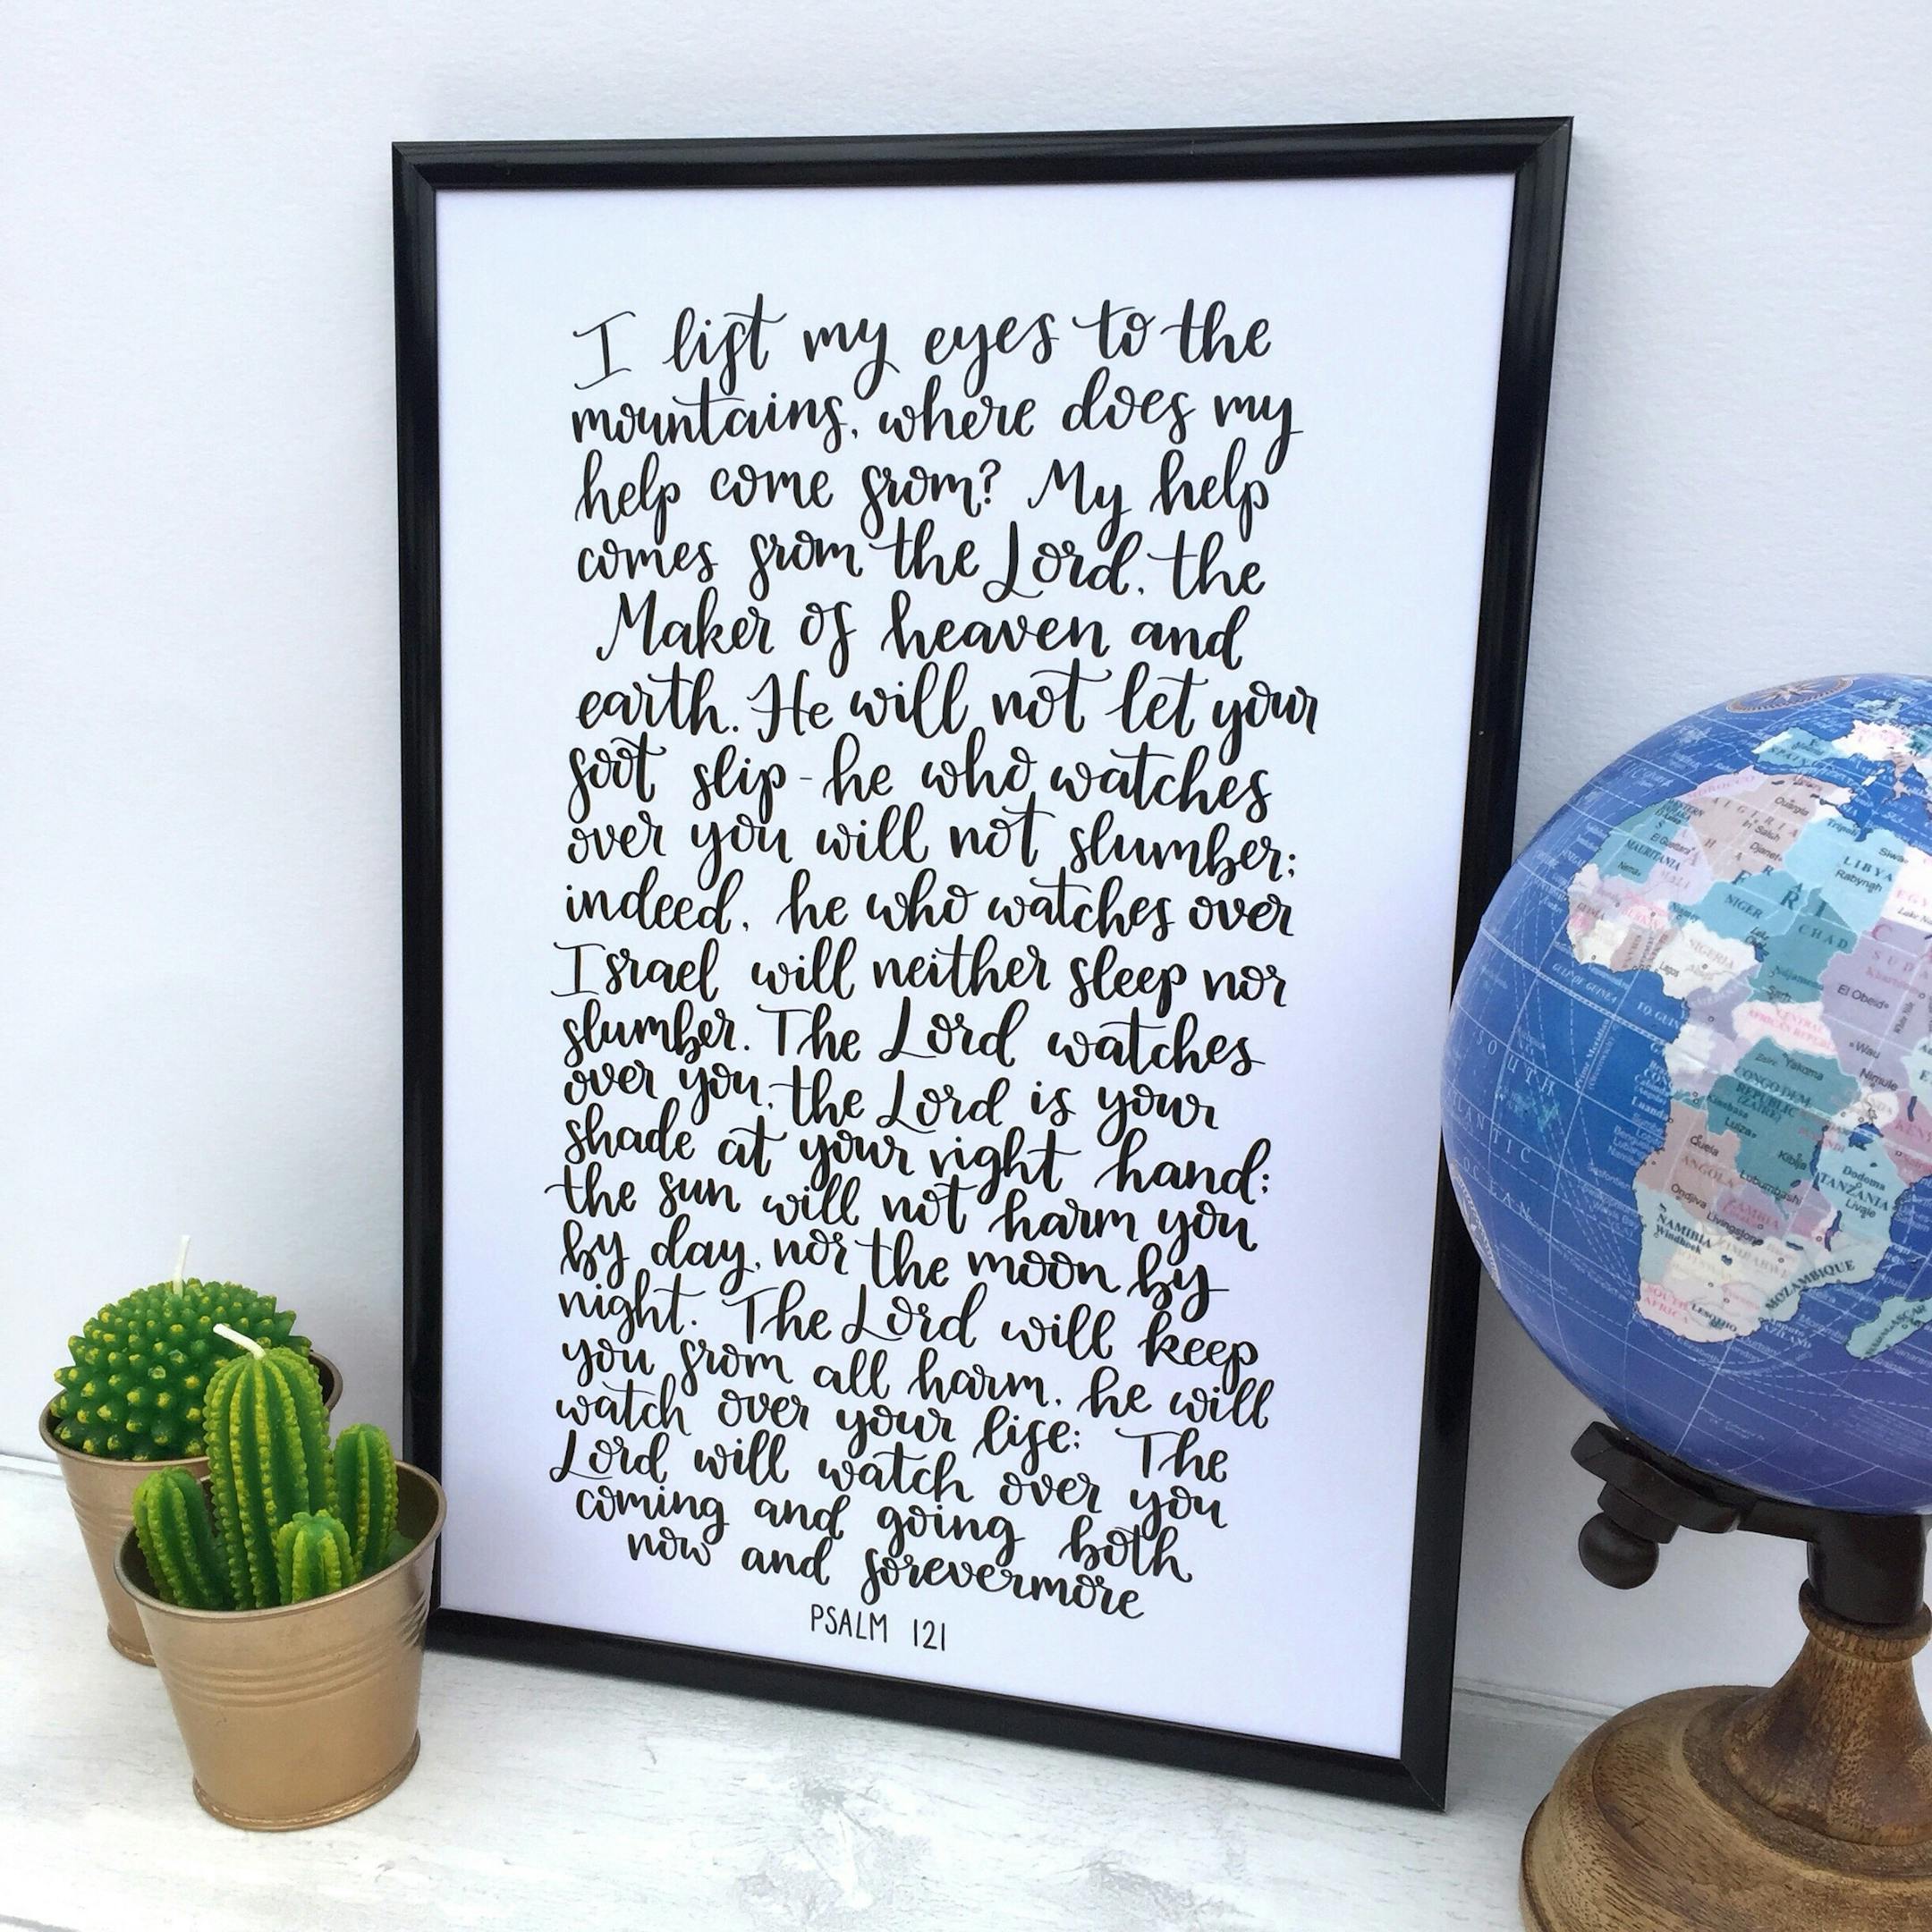 I lift my eyes to the
mountains, where does my
help come from? My help
comes from the Lord, the
Maker of heaven and
earth. He will not let your
foot slip - he who watches
over you will not slumber;
indeed, he who watches over
Israel will neither sleep nor
slumber. The Lord watches
over you, the Lord is your
shade at your right hand;
the sun will not harm you
by day, nor the moon by
night. The Lord will keep
you from all harm, he will
watch over your life; The
Lord will watch over you
coming and going both
now and forevermore
PSALM 121
ALGERIA
Ouargla
In Salah
Djanet
Tripoli
LIBYA
Rabyngh
Siwa
MAURITANIA
Nema
NIGER
CHAD
NIGERIA
Lagos
GULF OF GUINEA
El Obeid
CENTRAL
AFRICAN REPUBLIC
Wau
Yakoma
Nimule
CONGO DEM.
REPUBLIC
(ZAIRE)
Kinshasa
Luanda
Luiza
SOUTH
ATLANTIC
OCEAN
ANGOLA
Lubumbashi
Dodoma
TANZANIA
Liwale
Ondjiva
ZAMBIA
Livingstone
NAMIBIA
Windhoek
MOZAMBIQUE
SOUTH
AFRICA
LESOTHO